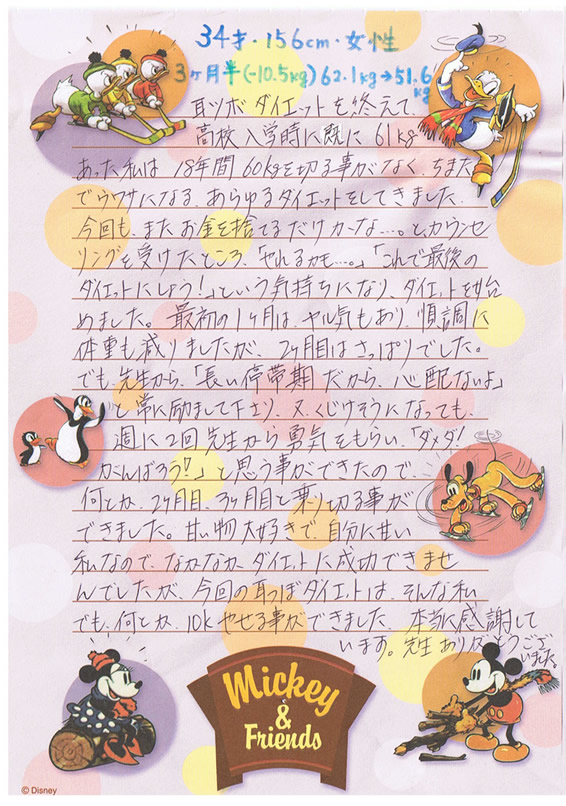 34才・156cm・女性
3ヶ月半(-10.5kg) 62.1kg→51.6
kg
耳ツボダイエットを終えて、
高校入学時に既に61kg
あった私は18年間60kgを切る事がなく、ちまた
でウワサになる、あらゆるダイエットをしてきました。
今回も、またお金を捨てるだけかな…。と、カウンセ
リングを受けたところ、「やれるかも…。」「これで最後の
ダイエットにしよう!」という気持ちになり、ダイエットを始
めました。最初の1ヶ月は、ヤル気もあり、順調に
体重も減りましたが、2ヶ月目はさっぱりでした。
でも、先生から、「長い停滞期だから、心配ないよ」
と常に励まして下さり、又、くじけそうになっても、
週に2回先生から勇気をもらい、「ダメダ!
がんばろう!!」と思う事ができたので、
何とか、2ヶ月目、3ヶ月目と乗り切る事が
できました。甘い物大好きで、自分に甘い
私なので、なかなかダイエットに成功できませ
んでしたが、今回の耳つぼダイエットは、そんな私
でも、何とか、10kやせる事ができました。本当に感謝して
います。先生ありがとうござ
いました。
Mickey
&
Friends
© Disney